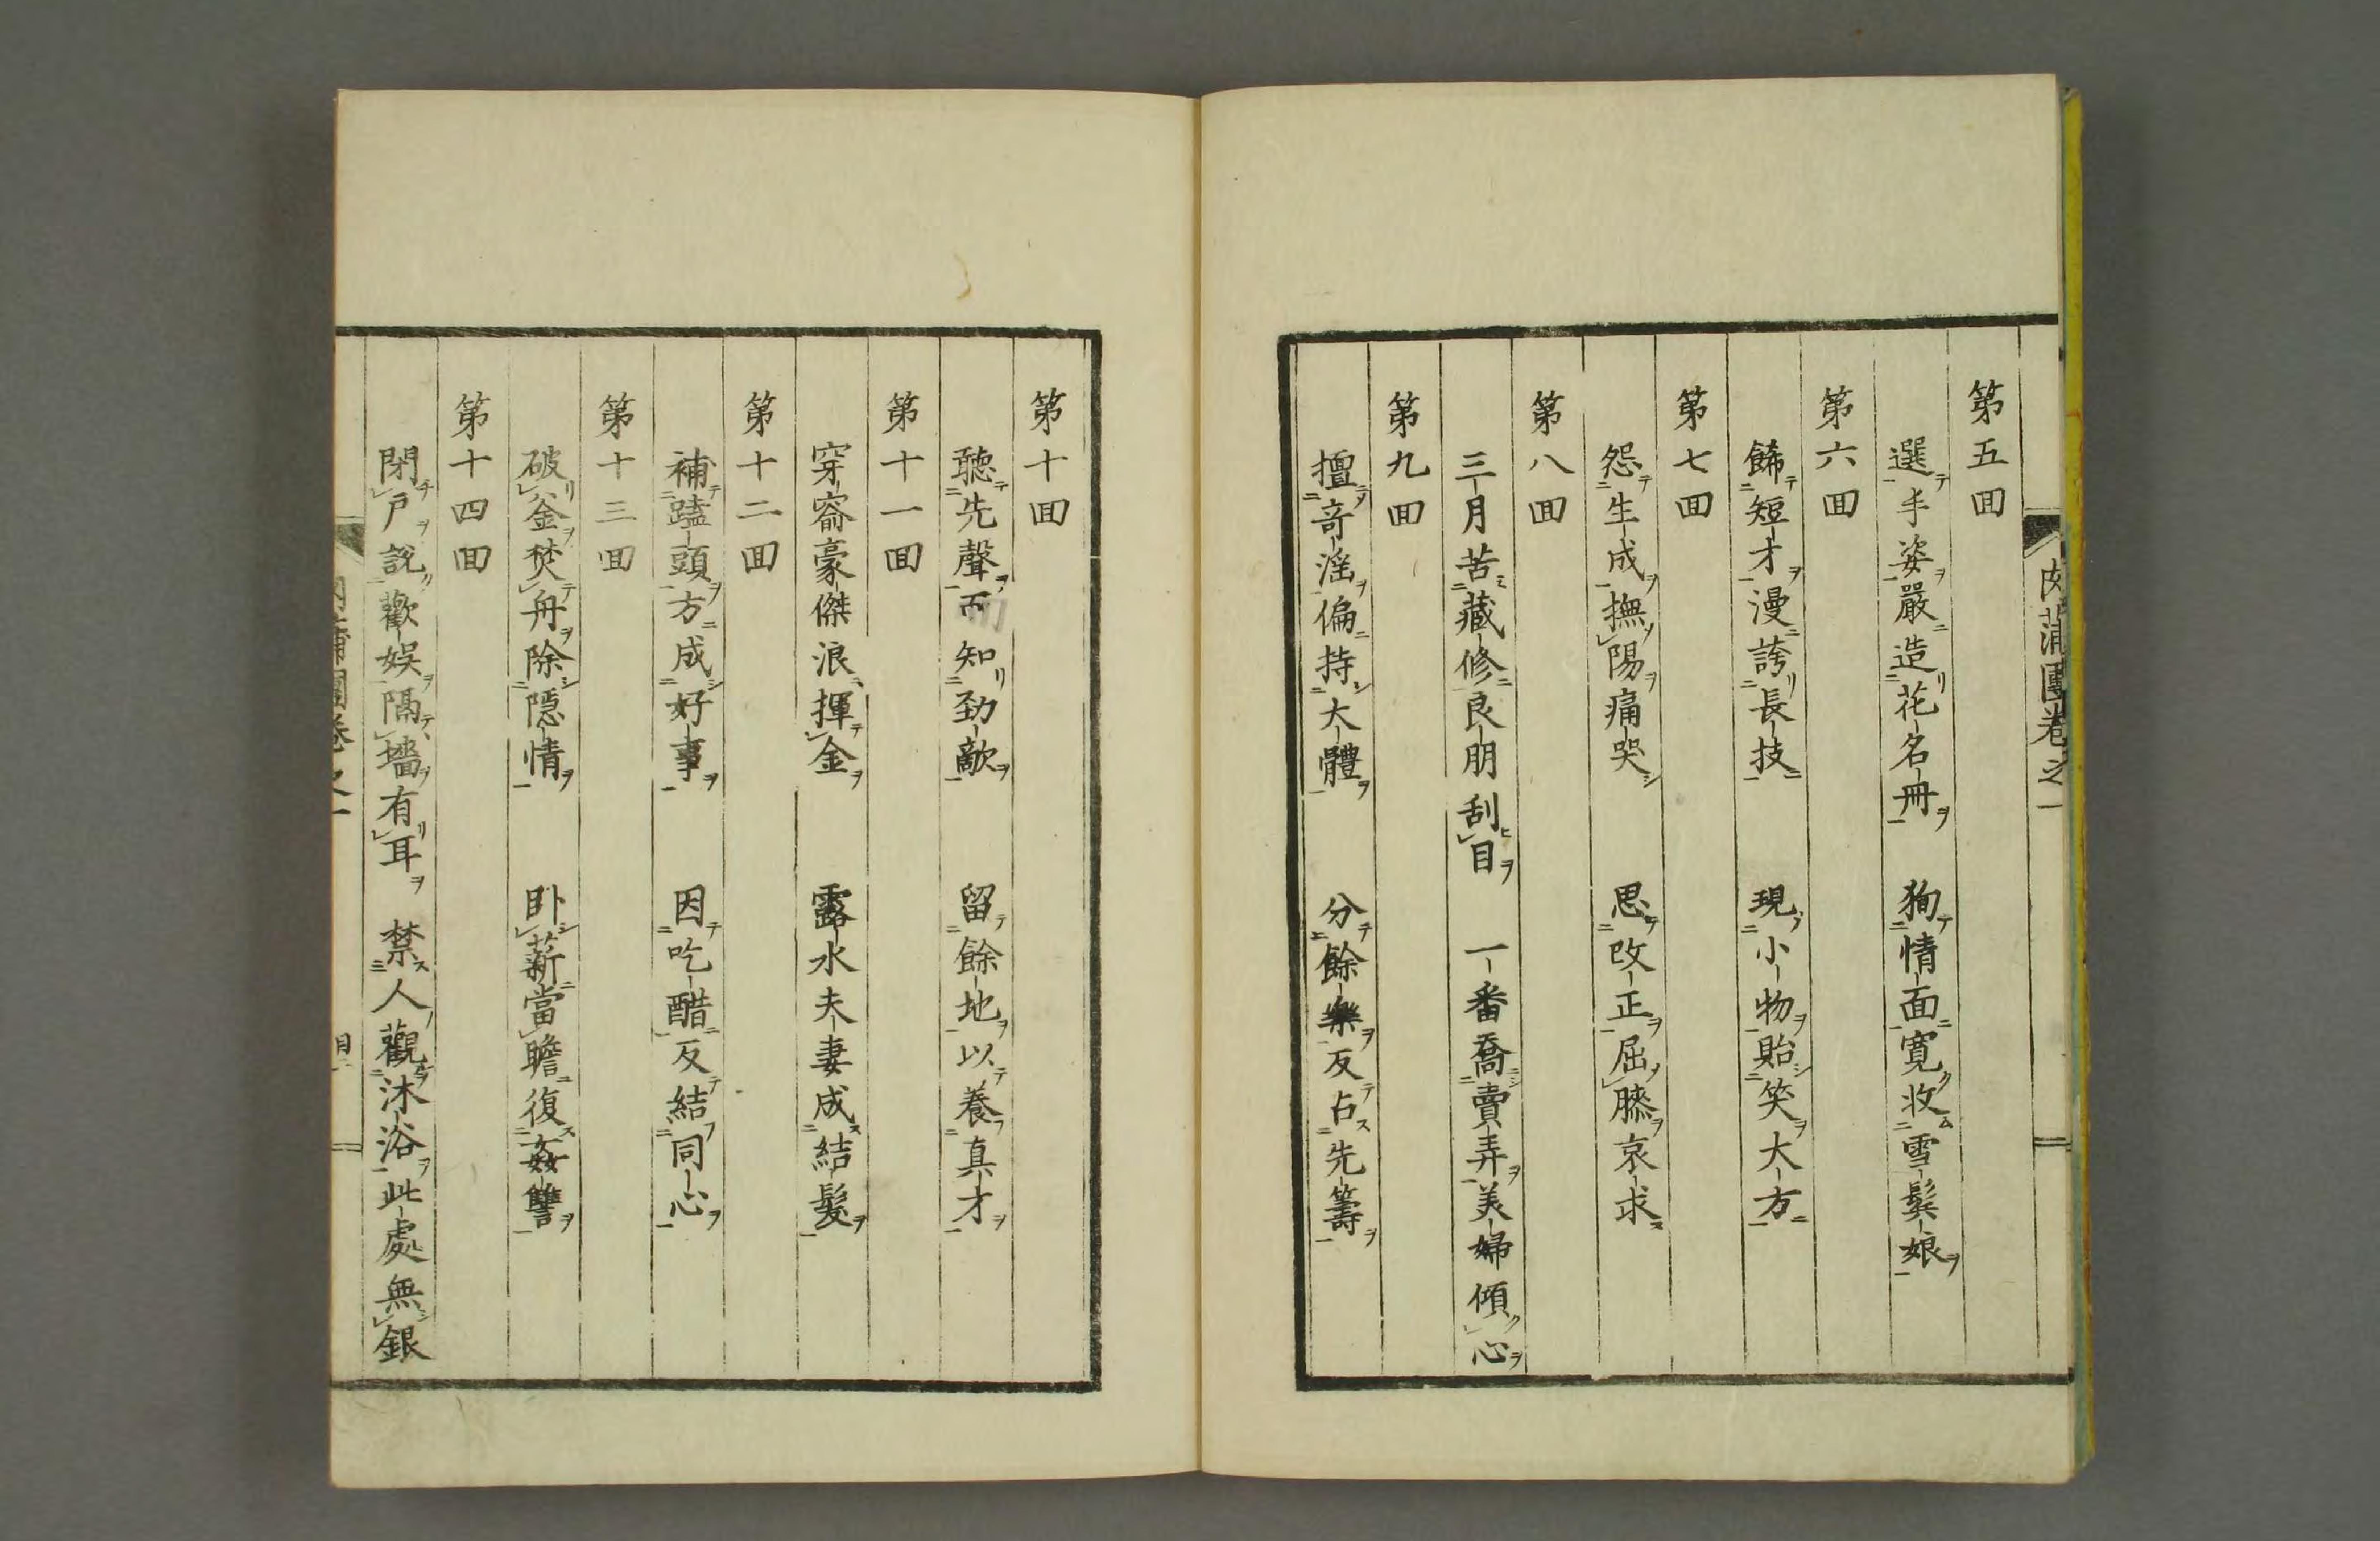 肉蒲團卷之一
第五回
選手姿嚴造花名冊　狥情面寛收雪鬓娘
第六回
餙短才漫誇長技　現小物貽笑大方
第七回
怨生成撫陽痛哭　思改正屈膝哀求
第八回
三月苦藏修良朋刮目　一番喬賣弄美婦傾心
第九回
擅奇淫偏持大體　分餘樂反占先籌
第十回
聽先聲而知勁敵　留餘地以養真才
第十一回
穿窬豪傑浪揮金　露水夫妻成結髮
第十二回
補𥕥頭方成好事　因吃醋反結同心
第十三回
破釜焚舟除隱情　卧薪當瞻復姦讐
第十四回
閉戶說歡娯隔墻有耳　禁人觀沐浴此處無銀
蒲團卷之一　目